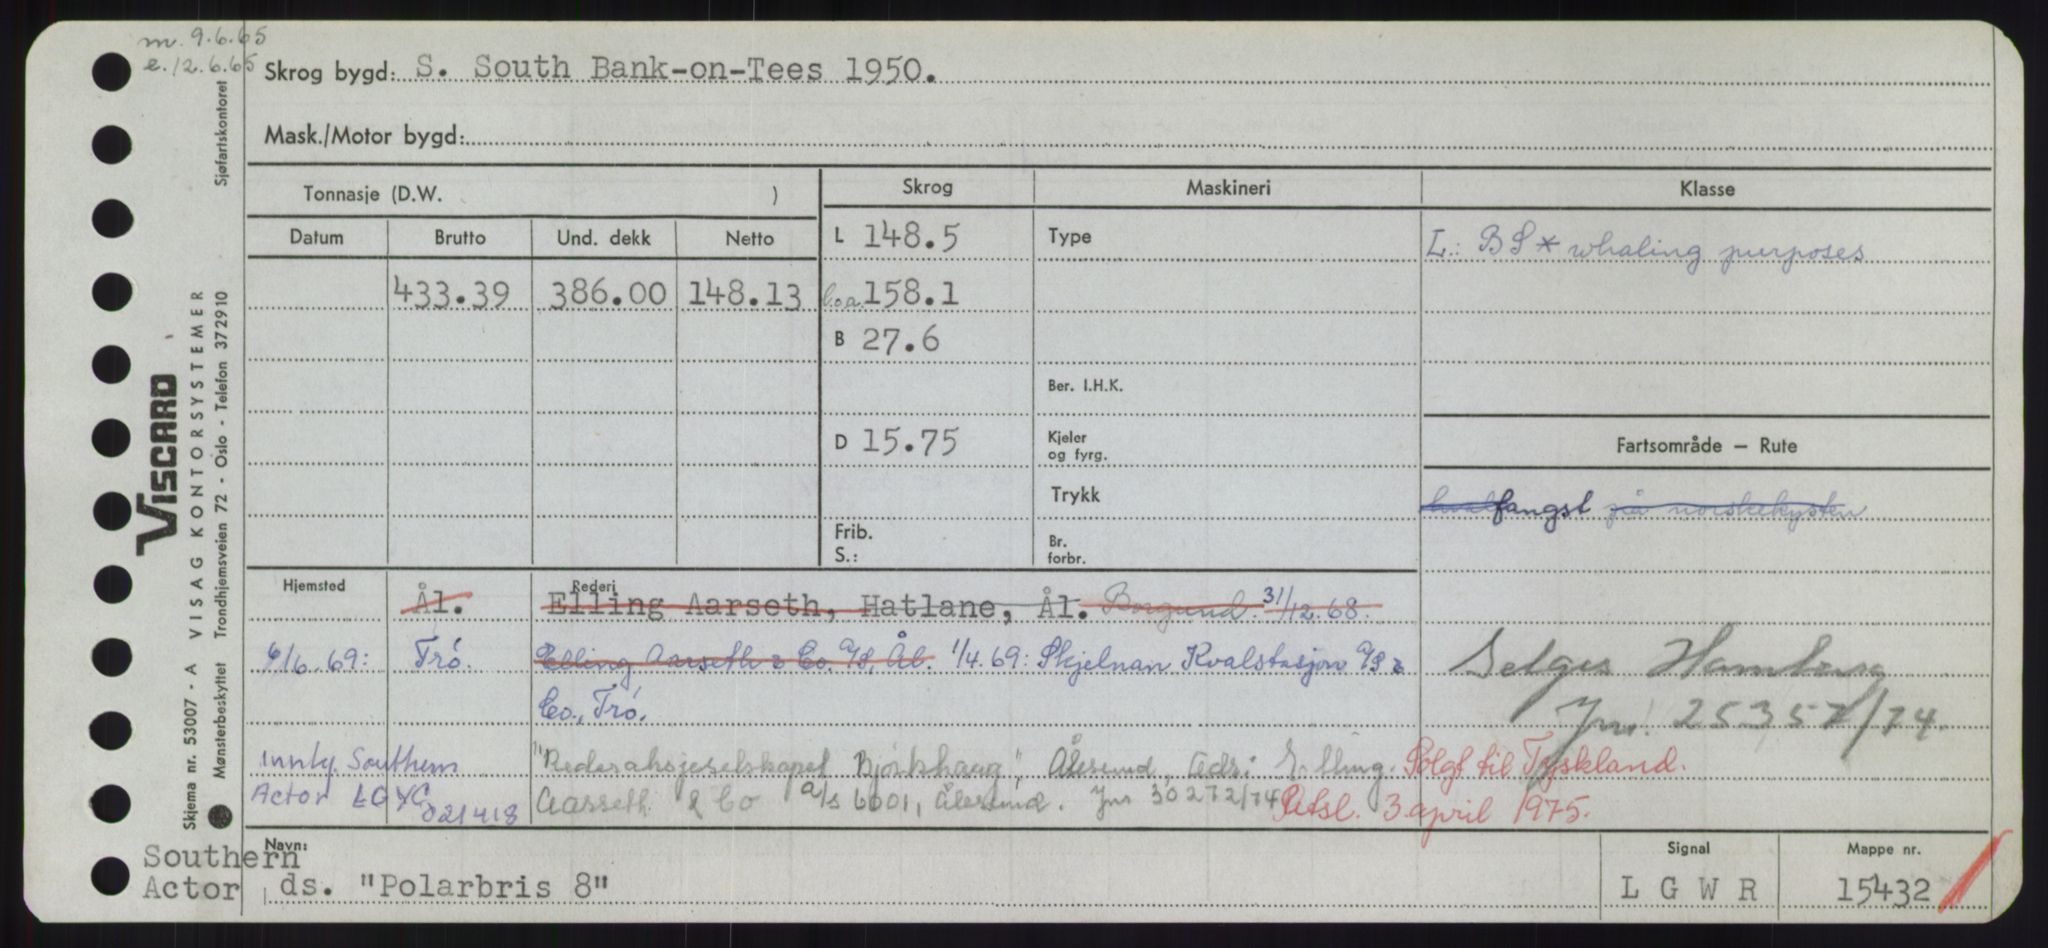 m. 9.6.65
e. 12.6.65
Skrog bygd: S. South Bank-on-Tees 1950.
Mask./Motor bygd:
Tonnasje (D.W. )
Skrog
Maskineri
Klasse
Datum
Brutto
Und. dekk
Netto
L 148.5
Type
L.: BS* whaling purposes
433.39
386.00
148.13
l.o.a. 158.1
B 27.6
Ber. I.H.K.
D 15.75
Kjeler
og fyrg.
Fartsområde – Rute
Trykk
hvalfangst på norskekysten
Frib.
S.:
Br.
forbr.
Hjemsted
Rederi
Ål.
Elling Aarseth, Hatlane, Ål. Borgund. 31/12.68.
6/6.69: Trö. Elling Aarseth & Co. A/S, Ål. 1/4.69: Skjelnan Kvalstasjon A/S &
Co., Trö.
Selges Hamburg
Jnr. 25357/74.
Innty. Southern
Actor LGYC
021418
"Rederaksjeselskapet Bjørkhaug", Ålesund, Adr: Elling
Aarseth & Co A/S 6001, Ålesund. Jnr 30272/74
Solgt til Tyskland.
Utsl. 3 april 1975.
Navn:
Southern
Actor
ds. "Polarbris 8"
Signal
L G W R
Mappe nr.
15432
VISCARD
VISAG KONTORSYSTEMER
Trondhjemsveien 72 - Oslo - Telefon 372910
Skjema nr. 53007 - A
Mønsterbeskyttet
Sjøfartskontoret